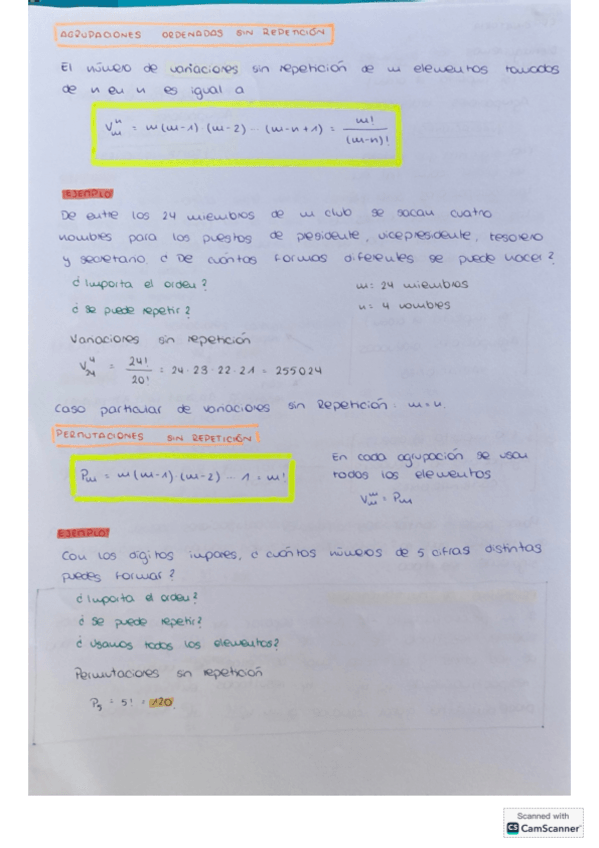 AGRUPACIONES ORDENADAS SIN REPETICIÓN
El número de variaciones sin repetición de m elementos tomados
de n en n es igual a
V_m^n = m(m-1)·(m-2)··(m-n+1) = m!/(m-n)!
EJEMPLO
De entre los 24 miembros de un club se sacan cuatro
nombres para los puestos de presidente, vicepresidente, tesorero
y secretario. ¿De cuántas formas diferentes se puede hacer?
¿Importa el orden? m: 24 miembros
¿Se puede repetir? n: 4 nombres
Variaciones sin repetición
V_24^4 = 24!/20! = 24·23·22·21 = 255024
Caso particular de variaciones sin repetición. m=n.
PERMUTACIONES SIN REPETICIÓN
P_m = m(m-1)·(m-2)··1 = m!
En cada agrupación se usan
todos los elementos
V_m^m = P_m
EJEMPLO
Con los dígitos impares, ¿cuántos números de 5 cifras distintas
puedes formar?
¿Importa el orden?
¿Se puede repetir?
¿Usamos todos los elementos?
Permutaciones sin repetición
P_5 = 5! = 120
Scanned with
CS CamScanner